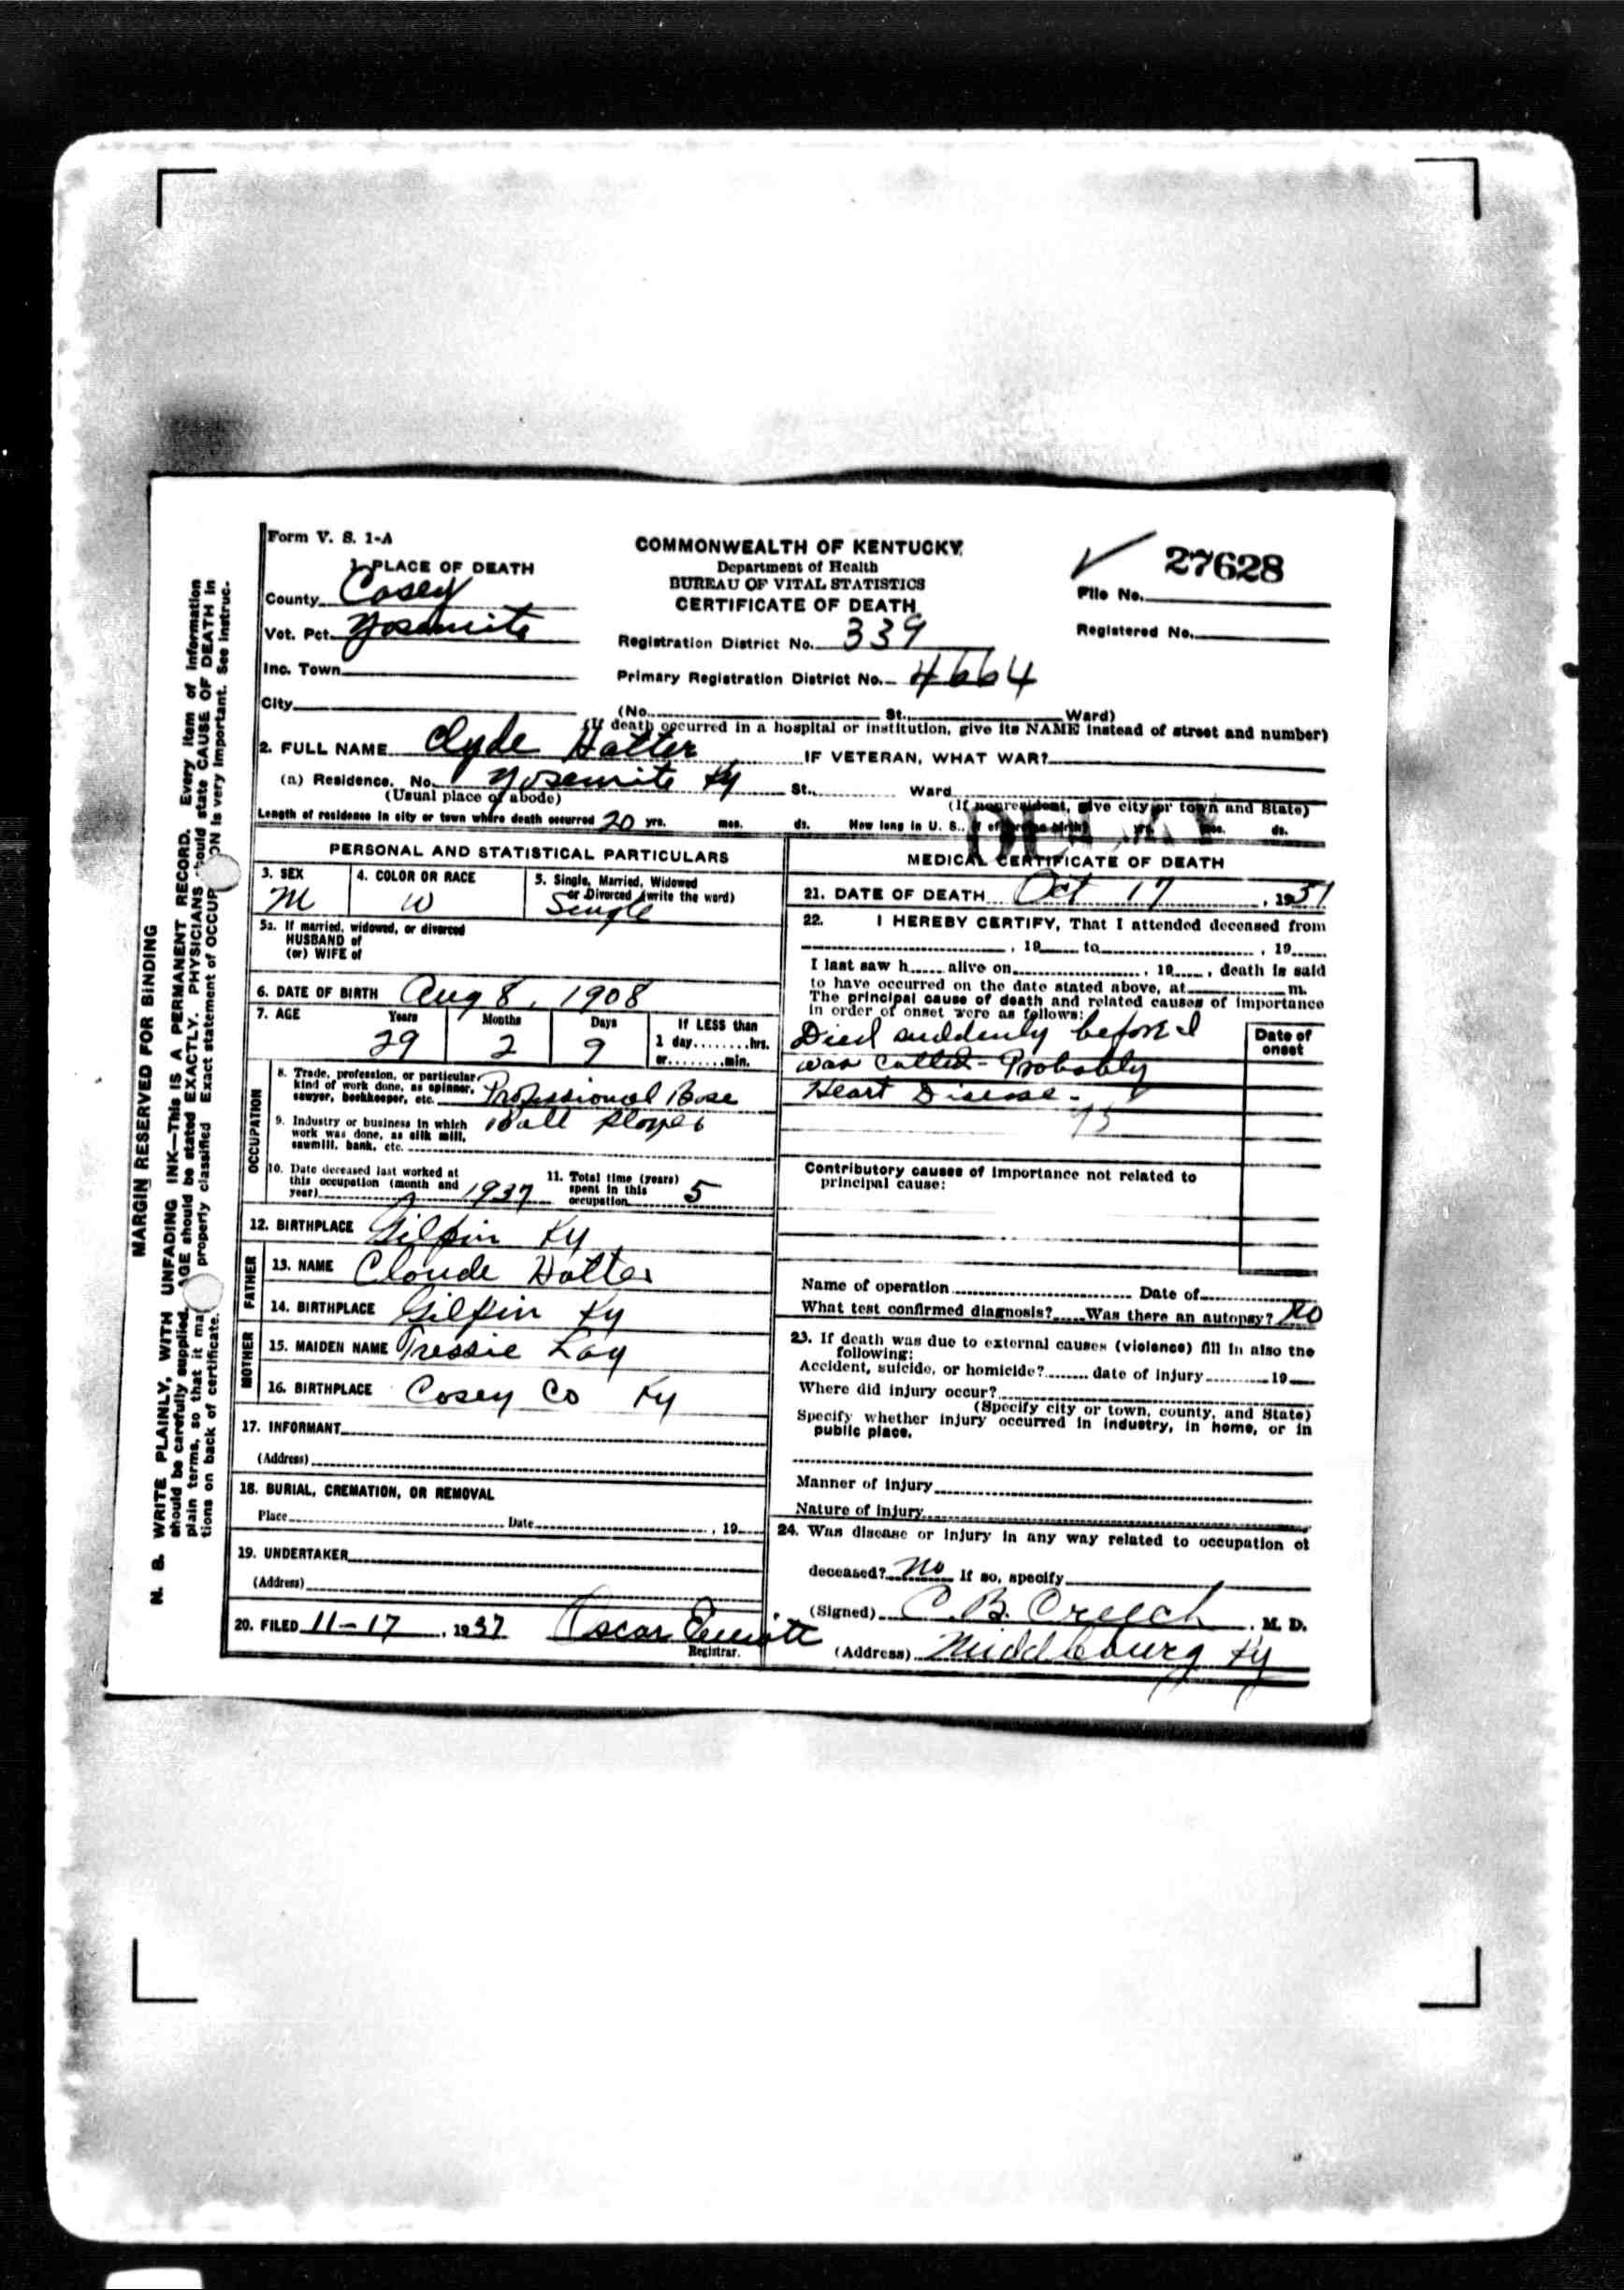 Form V. S. 1-A
COMMONWEALTH OF KENTUCKY
Department of Health
BUREAU OF VITAL STATISTICS
CERTIFICATE OF DEATH
27628
File No.
Registered No.
1. PLACE OF DEATH
County Casey
Vot. Pct. Yosemite
Inc. Town
City
Registration District No. 339
Primary Registration District No. 4664
(No. St., Ward)
(If death occurred in a hospital or institution, give its NAME instead of street and number)
2. FULL NAME Clyde Hatter IF VETERAN, WHAT WAR?
(a) Residence. No. Yosemite Ky St., Ward
(Usual place of abode) (If nonresident, give city or town and State)
Length of residence in city or town where death occurred 20 yrs. mos. ds. How long in U. S., if of foreign birth? yrs. mos. ds.
PERSONAL AND STATISTICAL PARTICULARS
3. SEX M
4. COLOR OR RACE W
5. Single, Married, Widowed or Divorced (write the word) Single
5a. If married, widowed, or divorced
HUSBAND of
(or) WIFE of
6. DATE OF BIRTH Aug 8, 1908
7. AGE Years 29 Months 2 Days 9 If LESS than 1 day........hrs. or........min.
OCCUPATION
8. Trade, profession, or particular kind of work done, as spinner, sawyer, bookkeeper, etc. Professional Base
9. Industry or business in which work was done, as silk mill, sawmill, bank, etc. Ball Player
10. Date deceased last worked at this occupation (month and year) 1937
11. Total time (years) spent in this occupation 5
12. BIRTHPLACE Gilpin Ky
FATHER
13. NAME Claude Hatter
14. BIRTHPLACE Gilpin Ky
MOTHER
15. MAIDEN NAME Tressie Lay
16. BIRTHPLACE Casey Co Ky
17. INFORMANT
(Address)
18. BURIAL, CREMATION, OR REMOVAL
Place Date , 19
19. UNDERTAKER
(Address)
20. FILED 11-17, 1937 Oscar
Registrar.
MEDICAL CERTIFICATE OF DEATH
21. DATE OF DEATH Oct 17, 1937
22. I HEREBY CERTIFY, That I attended deceased from
, 19 to , 19
I last saw h alive on , 19 , death is said
to have occurred on the date stated above, at m.
The principal cause of death and related causes of importance
in order of onset were as follows:
Date of onset
Died suddenly before I
was called - Probably
Heart Disease -
95
Contributory causes of importance not related to
principal cause:
Name of operation Date of
What test confirmed diagnosis? Was there an autopsy? No
23. If death was due to external causes (violence) fill in also the
following:
Accident, suicide, or homicide? date of injury 19
Where did injury occur?
(Specify city or town, county, and State)
Specify whether injury occurred in industry, in home, or in
public place.
Manner of injury
Nature of injury
24. Was disease or injury in any way related to occupation of
deceased? No If so, specify
(Signed) C. B. Creech, M. D.
(Address) Middleburg Ky
MARGIN RESERVED FOR BINDING
N. B. WRITE PLAINLY, WITH UNFADING INK—THIS IS A PERMANENT RECORD. Every item of information
should be carefully supplied. AGE should be stated EXACTLY. PHYSICIANS should state CAUSE OF DEATH in
plain terms, so that it may properly classified. Exact statement of OCCUPATION is very important. See instruc-
tions on back of certificate.